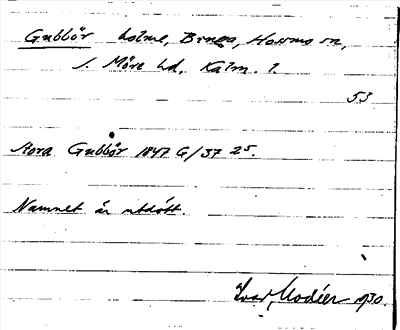 Gubbör holme, Binga, Hossmo sn,
S. Möre hd, Kalm. l.
53
Stora Gubbör 1847 G/37 25.
Namnet är utdött.
Ivar Modéer 1930.